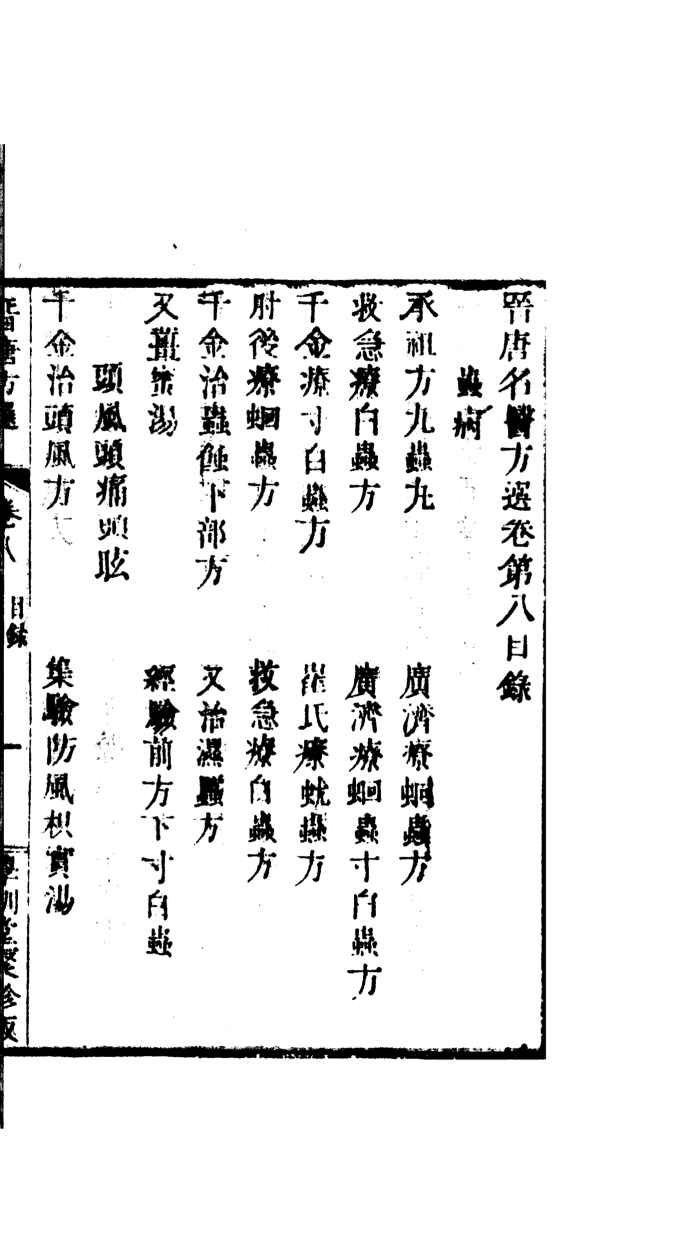 晉唐名醫方選卷第八目錄
蟲病
承祖方九蟲丸
廣濟療蛔蟲方
救急療白蟲方
廣濟療蛔蟲寸白蟲方
千金療寸白蟲方
崔氏療蛲蟲方
肘後療蛔蟲方
救急療白蟲方
千金治蟲蝕下部方
又治濕䘌方
又薑蜜湯
經驗前方下寸白蟲
頭風頭痛頭眩
千金治頭風方
集驗防風枳實湯
晉唐方選
卷八
目錄
一
聿訓堂聚珍版